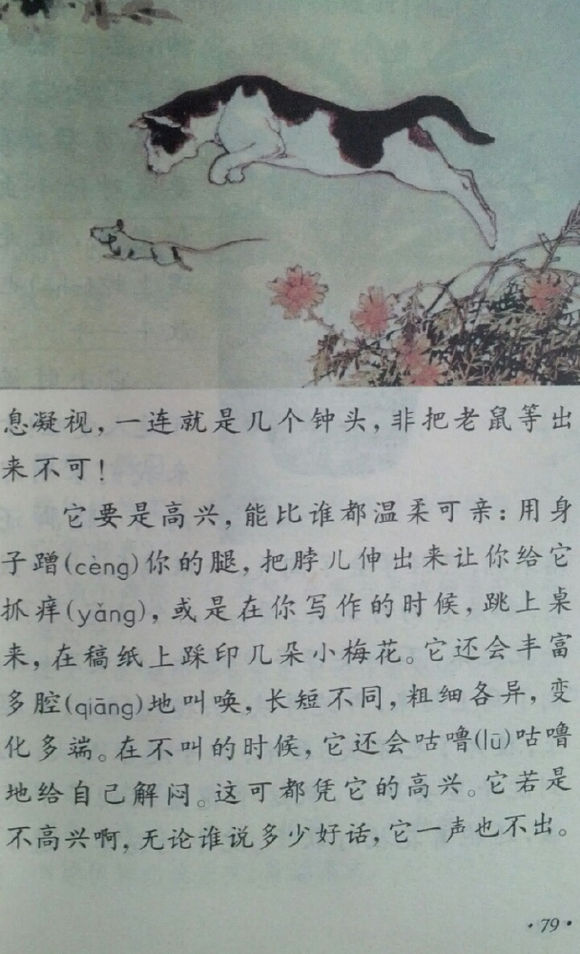 息凝视，一连就是几个钟头，非把老鼠等出
来不可！
它要是高兴，能比谁都温柔可亲：用身
子蹭(cèng)你的腿，把脖儿伸出来让你给它
抓痒(yǎng)，或是在你写作的时候，跳上桌
来，在稿纸上踩印几朵小梅花。它还会丰富
多腔(qiāng)地叫唤，长短不同，粗细各异，变
化多端。在不叫的时候，它还会咕噜(lū)咕噜
地给自己解闷。这可都凭它的高兴。它若是
不高兴啊，无论谁说多少好话，它一声也不出。
·79·